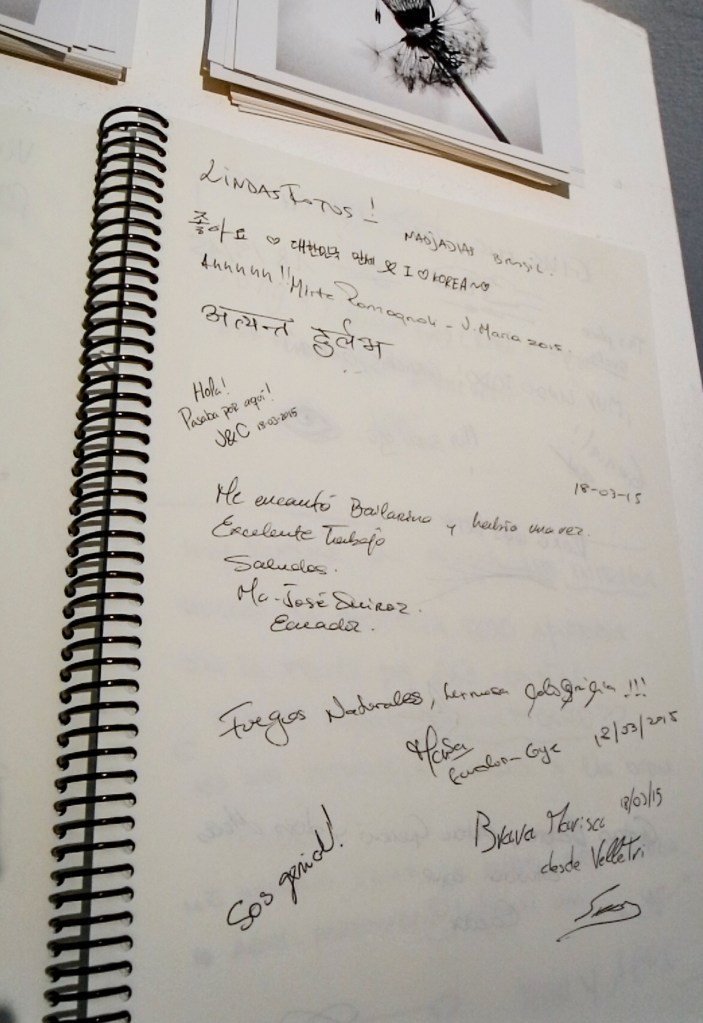 LINDAS FOTOS! NADJADIAS BRASIL.
좋아요 ♡ 대한민국 만세 I ♡ KOREA ~♡
Ahhhhh!! Mirta Romagnoli - V. Maria 2015.
अत्यन्त दुर्लभ
Hola!
Pasaba por aquí!
J&C 18-03-2015
18-03-15
Me encantó Bailarina y había una vez.
Excelente Trabajo
Saludos.
Ma-José Quiroz.
Ecuador.
Fuegos Naturales, hermosa !!!
Ecuador-Gye 18/03/2015
Brava Marisa 18/03/15
desde Velletri
Sos genial!